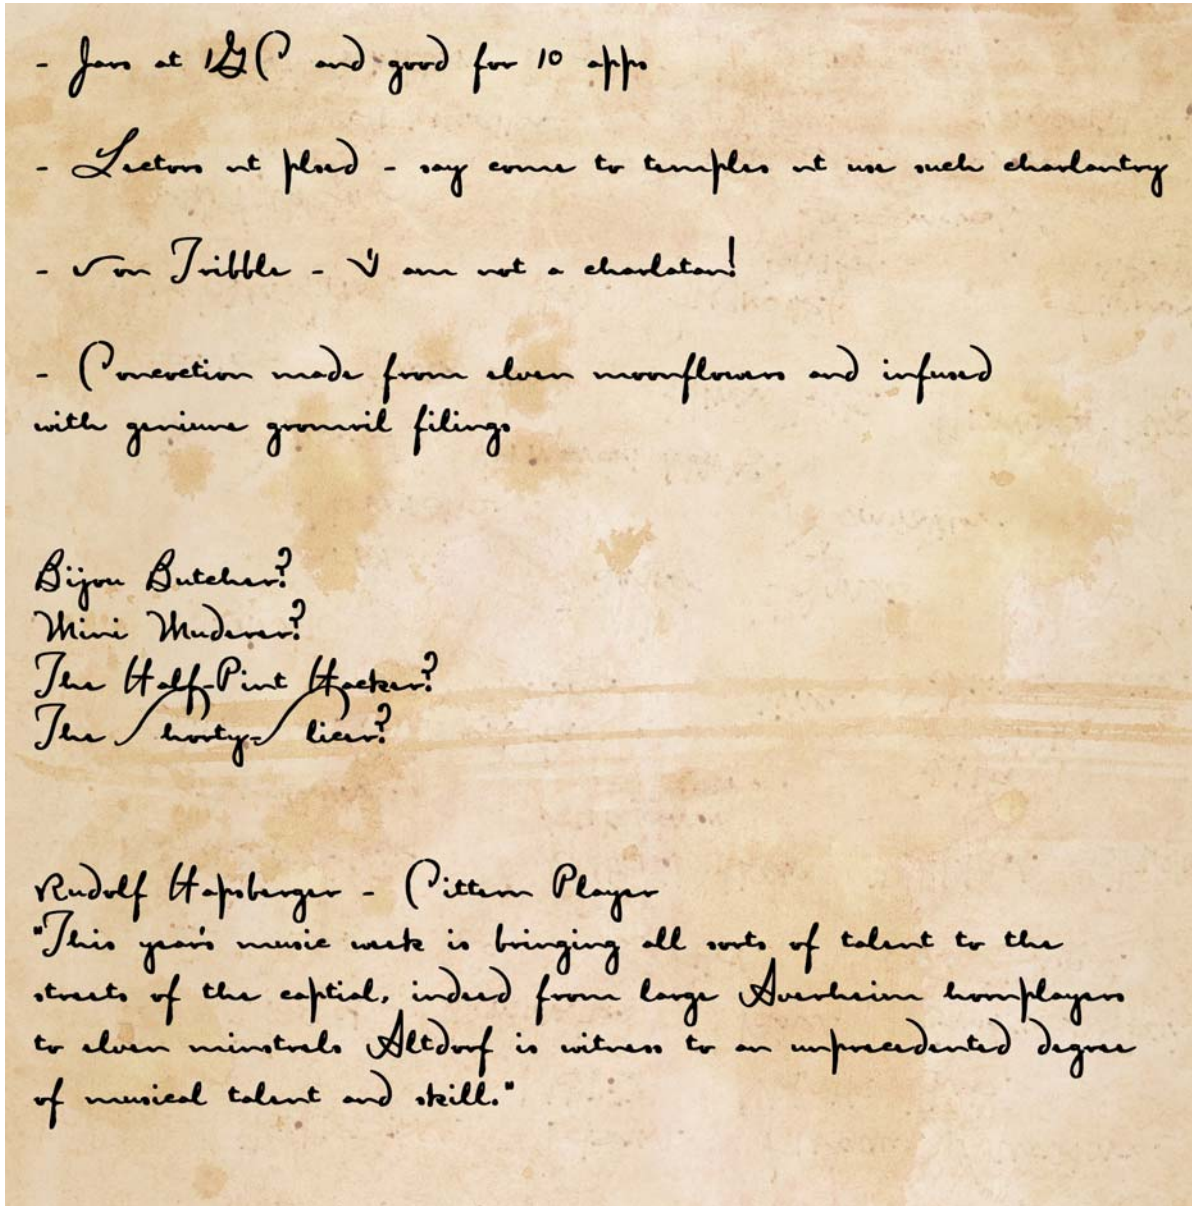 - Jars at 1GC and good for 10 apps
- Lectors nt plsed - say come to temples nt use such charlantry
- Von Tribble - I am not a charlatan!
- Concretion made from elven moonflowers and infused
with geniune gromril filings
Bijou Butcher?
Mini Muderer?
The Half-Pint Hacker?
The Shorty-Slicer?
Rudolf Hapsberger - Cittern Player
"This year's music week is bringing all sorts of talent to the
streets of the captial, indeed from large Averheim hornplayers
to elven minstrels Altdorf is witness to an unprecedented degree
of musical talent and skill."